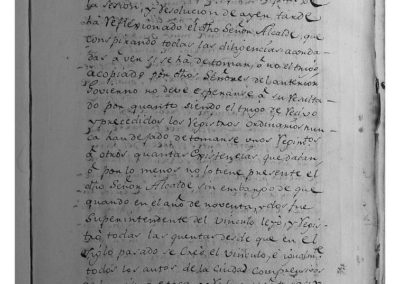 la sesion, y Resolucion de ayer tarde
ha Reflexionado el dho Señor Alcalde, que
conspirando todas las diligencias acorda
das à ver si se ha de tomar, ò no el trigo
acopiado por dhos Señores del anterior
Govierno no debe esperarse à su Resulta
do por quanto siendo el trigo de Recivo
y precedidos los Registros ordinarios nun
ca han dejado de tomarse unos Registros
à otros quantas Existencias quedaran
ò por lo menos no lo tiene presente el
dho Señor Alcalde, sin embargo de que
quando en el año de noventa, y dos fue
Superintendente del vinculo leyò, y Regis
trò todas las quentas desde que en el
Siglo pasado se Creò el vinculo, è igualmte
todos los autos de la Ciudad Compresivos